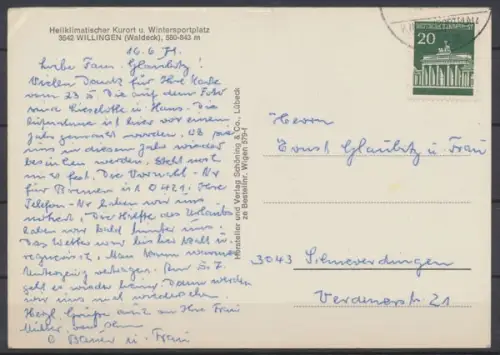 Heilklimatischer Kurort u. Wintersportplatz
3542 WILLINGEN (Waldeck), 550-843 m
16.6.71.
Liebe Fam. Glaubitz!
Vielen Dank für Ihre Karte
vom 23.5. Die auf dem Foto
sind Lieselotte u. Hans. Die
ist hier vor einem
Jahr gemacht worden. Ob Sie
uns in diesem Jahr wieder
besuchen werden, steht noch
nicht fest. Die Vorwahl-Nr
für Bremen ist 0421. Ihre
Telefon-Nr haben wir uns
notiert. Die Hälfte des Urlaubs
haben wir bald hinter uns.
Das Wetter war bis her kalt u.
regnerisch. Man kann warmes
Unterzeug vertragen. Am 3.7.
geht es wieder heim. Dann werden
wir uns mal wiedersehen.
Herzl. Grüße auch an Ihre Frau
Mutter, von Ihrer
Bauer u. Frau
Hersteller und Verlag Schöning & Co., Lübeck
ze Bestellnr. Wigen 579-f
DEUTSCHE BUNDESPOST
20
Herrn
Ernst Glaubitz u. Frau
3043 Schneverdingen
Verdenerstr. 21